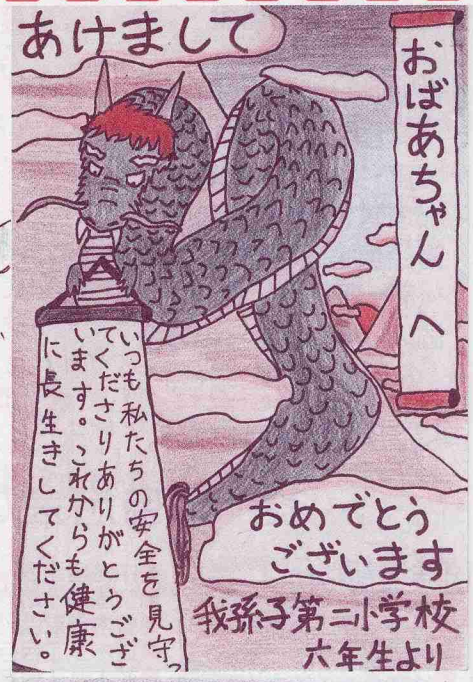 あけまして
おばあちゃんへ
いつも私たちの安全を見守っ
てくださりありがとうござ
います。これからも健康
に長生きしてください。
おめでとう
ございます
我孫子第二小学校
六年生より